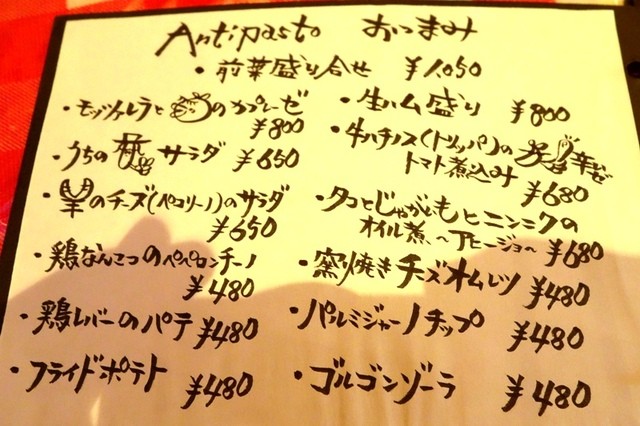 Antipasto おつまみ
・前菜盛り合せ ¥1,050
・モッツァレラとのカプレーゼ
¥800
・うちのサラダ ¥650
・羊のチーズ(ペコリーノ)のサラダ
¥650
・鶏なんこつのペペロンチーノ
¥480
・鶏レバーのパテ ¥480
・フライドポテト ¥480
・生ハム盛り ¥800
・牛ハチノス(トリッパ)の
トマト煮込み ¥680
・タコとじゃがいもとニンニクの
オイル煮 〜アヒージョ〜 ¥680
・窯焼きチーズオムレツ ¥480
・パルミジャーノチップ ¥480
・ゴルゴンゾーラ ¥480